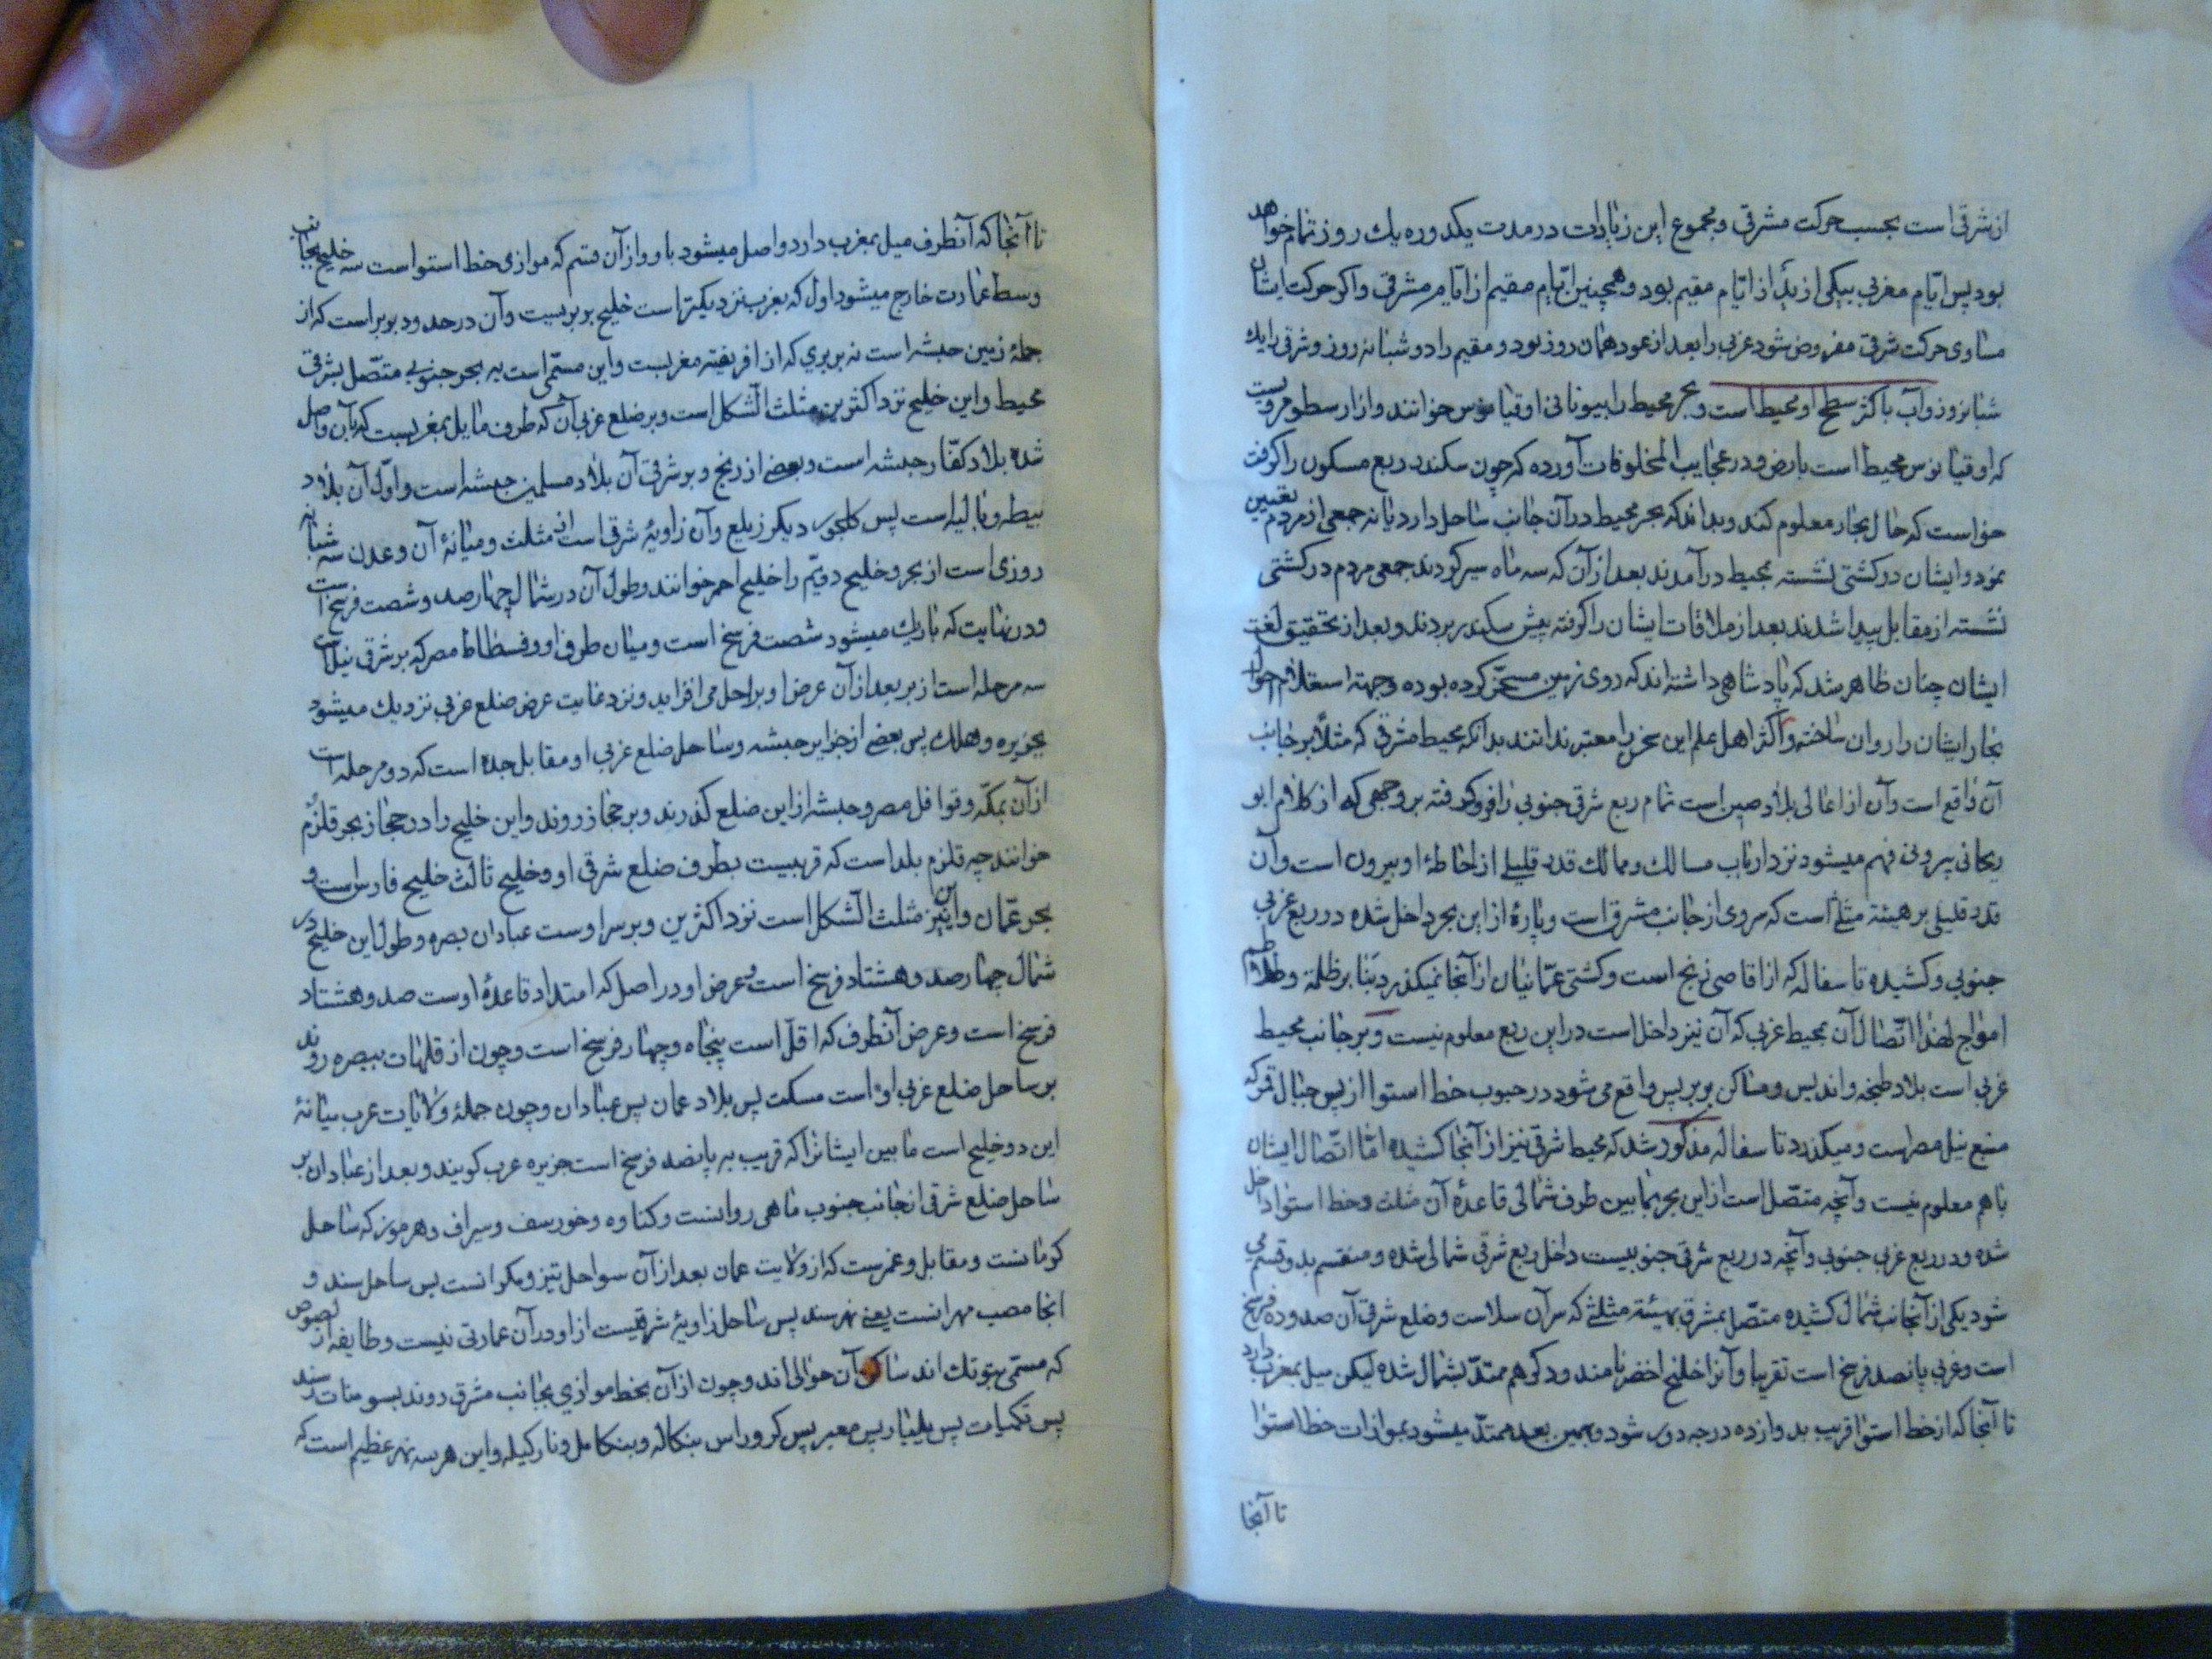 از شرقی است بحسب حرکت مشرقی و مجموع این زیادات در مدت یکدوره یك روز تمام خواهد
بود پس ایام مغربی بیکی ازید از ایام مقیم بود و همچنین ایام مقیم از ایام مشرقی و اکر حرکت ایشان
مساوی حرکت شرقی مفروض شود غربی را بعد از عود همان روز بود و مقیم را دو شبانه روز و شرقی را یك
شبانروز و آب باکثر سطح او محیط است و بحر محیط را بیونانی اوقیانوس خوانند و از ارسطو مرویست
که اوقیانوس محیط است بارض و در عجایب المخلوقات آورده که چون سکندر ربع مسکون را کرفت
خواست که حال بحار معلوم کند و بداند که بحر محیط در آن جانب ساحل دارد یا نه جمعی از مردم تعیین
نمود و ایشان در کشتی نشسته بمحیط در آمدند بعد از آن که سه ماه سیر کردند جمعی مردم در کشتی
نشسته از مقابل پیدا شدند بعد از ملاقات ایشان را کرفته پیش سکندر بردند و بعد از تحقیق لغت
ایشان چنان ظاهر شد که پادشاهی داشته اند که روی زمین مسخر کرده بوده و جهته استعلام احوال
بحار ایشان را روان ساخته و اکثر اهل علم این سخن را معتبر ندانند بدانکه محیط مشرقی که مثلا بر جانب
آن واقع است و آن از اعالی بلاد صین است تمام ربع شرقی جنوبی را فرو کرفته بر وجهی که از کلام ابو
ریحانی بیرونی فهم میشود نزد ارباب مسالك و ممالك قدر قلیلی از احاطهٔ او بیرون است و آن
قدر قلیلی بر هیئة مثلثی است که سروی از جانب مشرق است و پارهٔ از این بحر داخل شده در ربع غربی
جنوبی و کشیده تا سفاله که از اقاصی زنج است و کشتی عمانیان از آنجا نمیکذرد بنا بر ظلمة و تلاطم
امواج لهذا اتصال آن بمحیط غربی که آن نیز داخل است در این ربع معلوم نیست و بر جانب محیط
غربی است بلاد طنجه و اندلس و مساکن بربر پس واقع می شود در جنوب خط استوا از پس جبال قمر که
منبع نیل مصر است و میکذرد تا سفاله مذکور شد که محیط شرقی نیز از آنجا کشیده اما اتصال ایشان
باهم معلوم نیست و آنچه متصل است از این بحر بمابین طرف شمالی قاعدهٔ آن مثلث و خط استوا داخل
شده و در ربع غربی جنوبی و آنچه در ربع شرقی جنوبیست داخل ربع شرقی شمالی شده و منقسم بدو قسم می
شود یکی از آنجانب شمال کشیده متصل بمشرق بهیئة مثلثی که سر آن سلاست و ضلع شرقی آن صد و ده فرسخ
است و غربی پانصد فرسخ است تقریبا و آنرا خلیج اخضر نامند و دکر هم ممتد بشمال شده لیکن میل بمغرب دارد
تا آنجا که از خط استوا قریب بدوازده درجه دور شود و بهمین بعد ممتد میشود بموازات خط استوا
تا آنجا
تا آنجا که آنطرف میل بمغرب دارد واصل میشود باو و از آن قسم که موازی خط استوا است سه خلیج بجانب
وسط عمارت خارج میشود اول که بغرب نزدیکتر است خلیج بربریست و آن در حدود بربر است که از
جملهٔ زمین حبشه است نه بربری که از افریقیه مغربست و این مسمی است به بحر جنوبی متصل بشرقی
محیط و این خلیج نزد اکثرین مثلث الشکل است و بر ضلع غربی آن که طرف مایل بمغربست که بآن واصل
شده بلاد کفار حبشه است و بعضی از زنج و بر شرقی آن بلاد مسلمین حبشه است و اول آن بلاد
پس دیکر زیلع و آن زاویهٔ شرقی است از مثلث و میانهٔ آن و عدن سه شبانه
روزی است از بحر و خلیج دویم را خلیج احمر خوانند و طول آن در شمال چهارصد و شصت فرسخ است
و در نهایت که باریك میشود شصت فرسخ است و میان طرف او و فسطاط مصر که بر شرقی نیل است
سه مرحله است از بر بعد از آن عرض او براحل می افزاید و نزد غایت عرض ضلع غربی نزدیك میشود
بجزیره وهلك پس بعضی از جزایر حبشه و ساحل ضلع غربی او مقابل جده است که دو مرحله است
از آن بمکه و قوافل مصر و حبشه از این ضلع کذرند و بر حجاز روند و این خلیج را در حجاز بحر قلزم
خوانند چه قلزم بلد است که قریبیست بطرف ضلع شرقی او و خلیج ثالث خلیج فارس است و
بحر عمان و این نیز مثلث الشکل است نزد اکثرین و بر سر اوست عبادان بصره و طول این خلیج در
شمال چهارصد و هشتاد فرسخ است و عرض او در اصل که امتداد قاعدهٔ اوست صد و هشتاد
فرسخ است و عرض آنطرف که اقل است پنجاه و چهار فرسخ است و چون از قلهات ببصره روند
بر ساحل ضلع غربی او است مسکت پس بلاد عمان پس عبادان و چون جملهٔ ولایات عرب میانهٔ
این دو خلیج است مابین ایشانرا که قریب به پانصد فرسخ است جزیره عرب کویند و بعد از عبادان بر
ساحل ضلع شرقی از جانب جنوب ماهی روانست و کناوه و خورسف و سیراف و هرموز که ساحل
کرمانست و مقابل و عمرست که از ولایت عمان بعد از آن سواحل تیز و مکرانست پس ساحل سند و
انجا مصب مهرانست یعنی نهر سند پس ساحل زاویهٔ شرقیست از او و در آن عمارتی نیست و طایفه از لصوص
که مسمی بتوتك اند ساکن آن حوالی اند و چون از آن بخط موازی بجانب مشرق روند بسومنات رسند
پس تکمیات پس ملیبار پس معبر پس کرور اس بنکاله و بنکا مل و نارکیله و این هر سه نهر عظیم است که